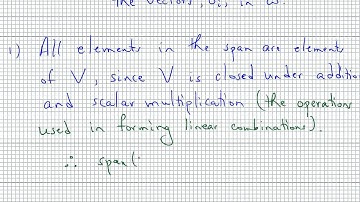 the vectors, v_i, in W.
1) All elements in the span are elements
of V, since V is closed under additio
and scalar multiplication (the operations
used in forming linear combinations).
∴ span(